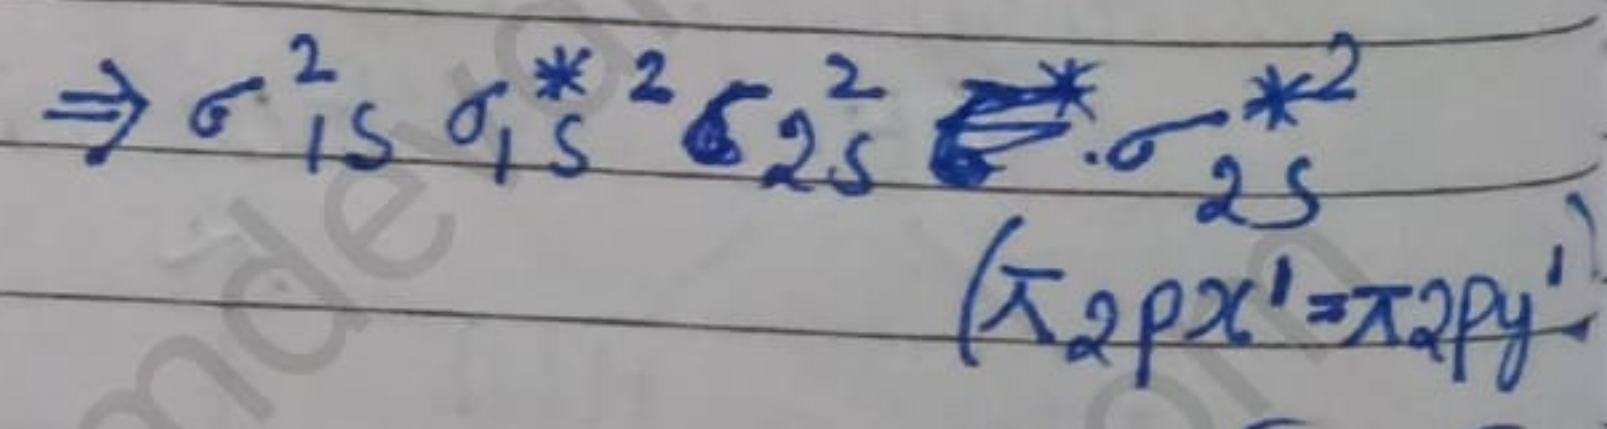 ⇒ σ²1s σ*1s² σ2s² σ*2s²
(π2px¹=π2py¹)